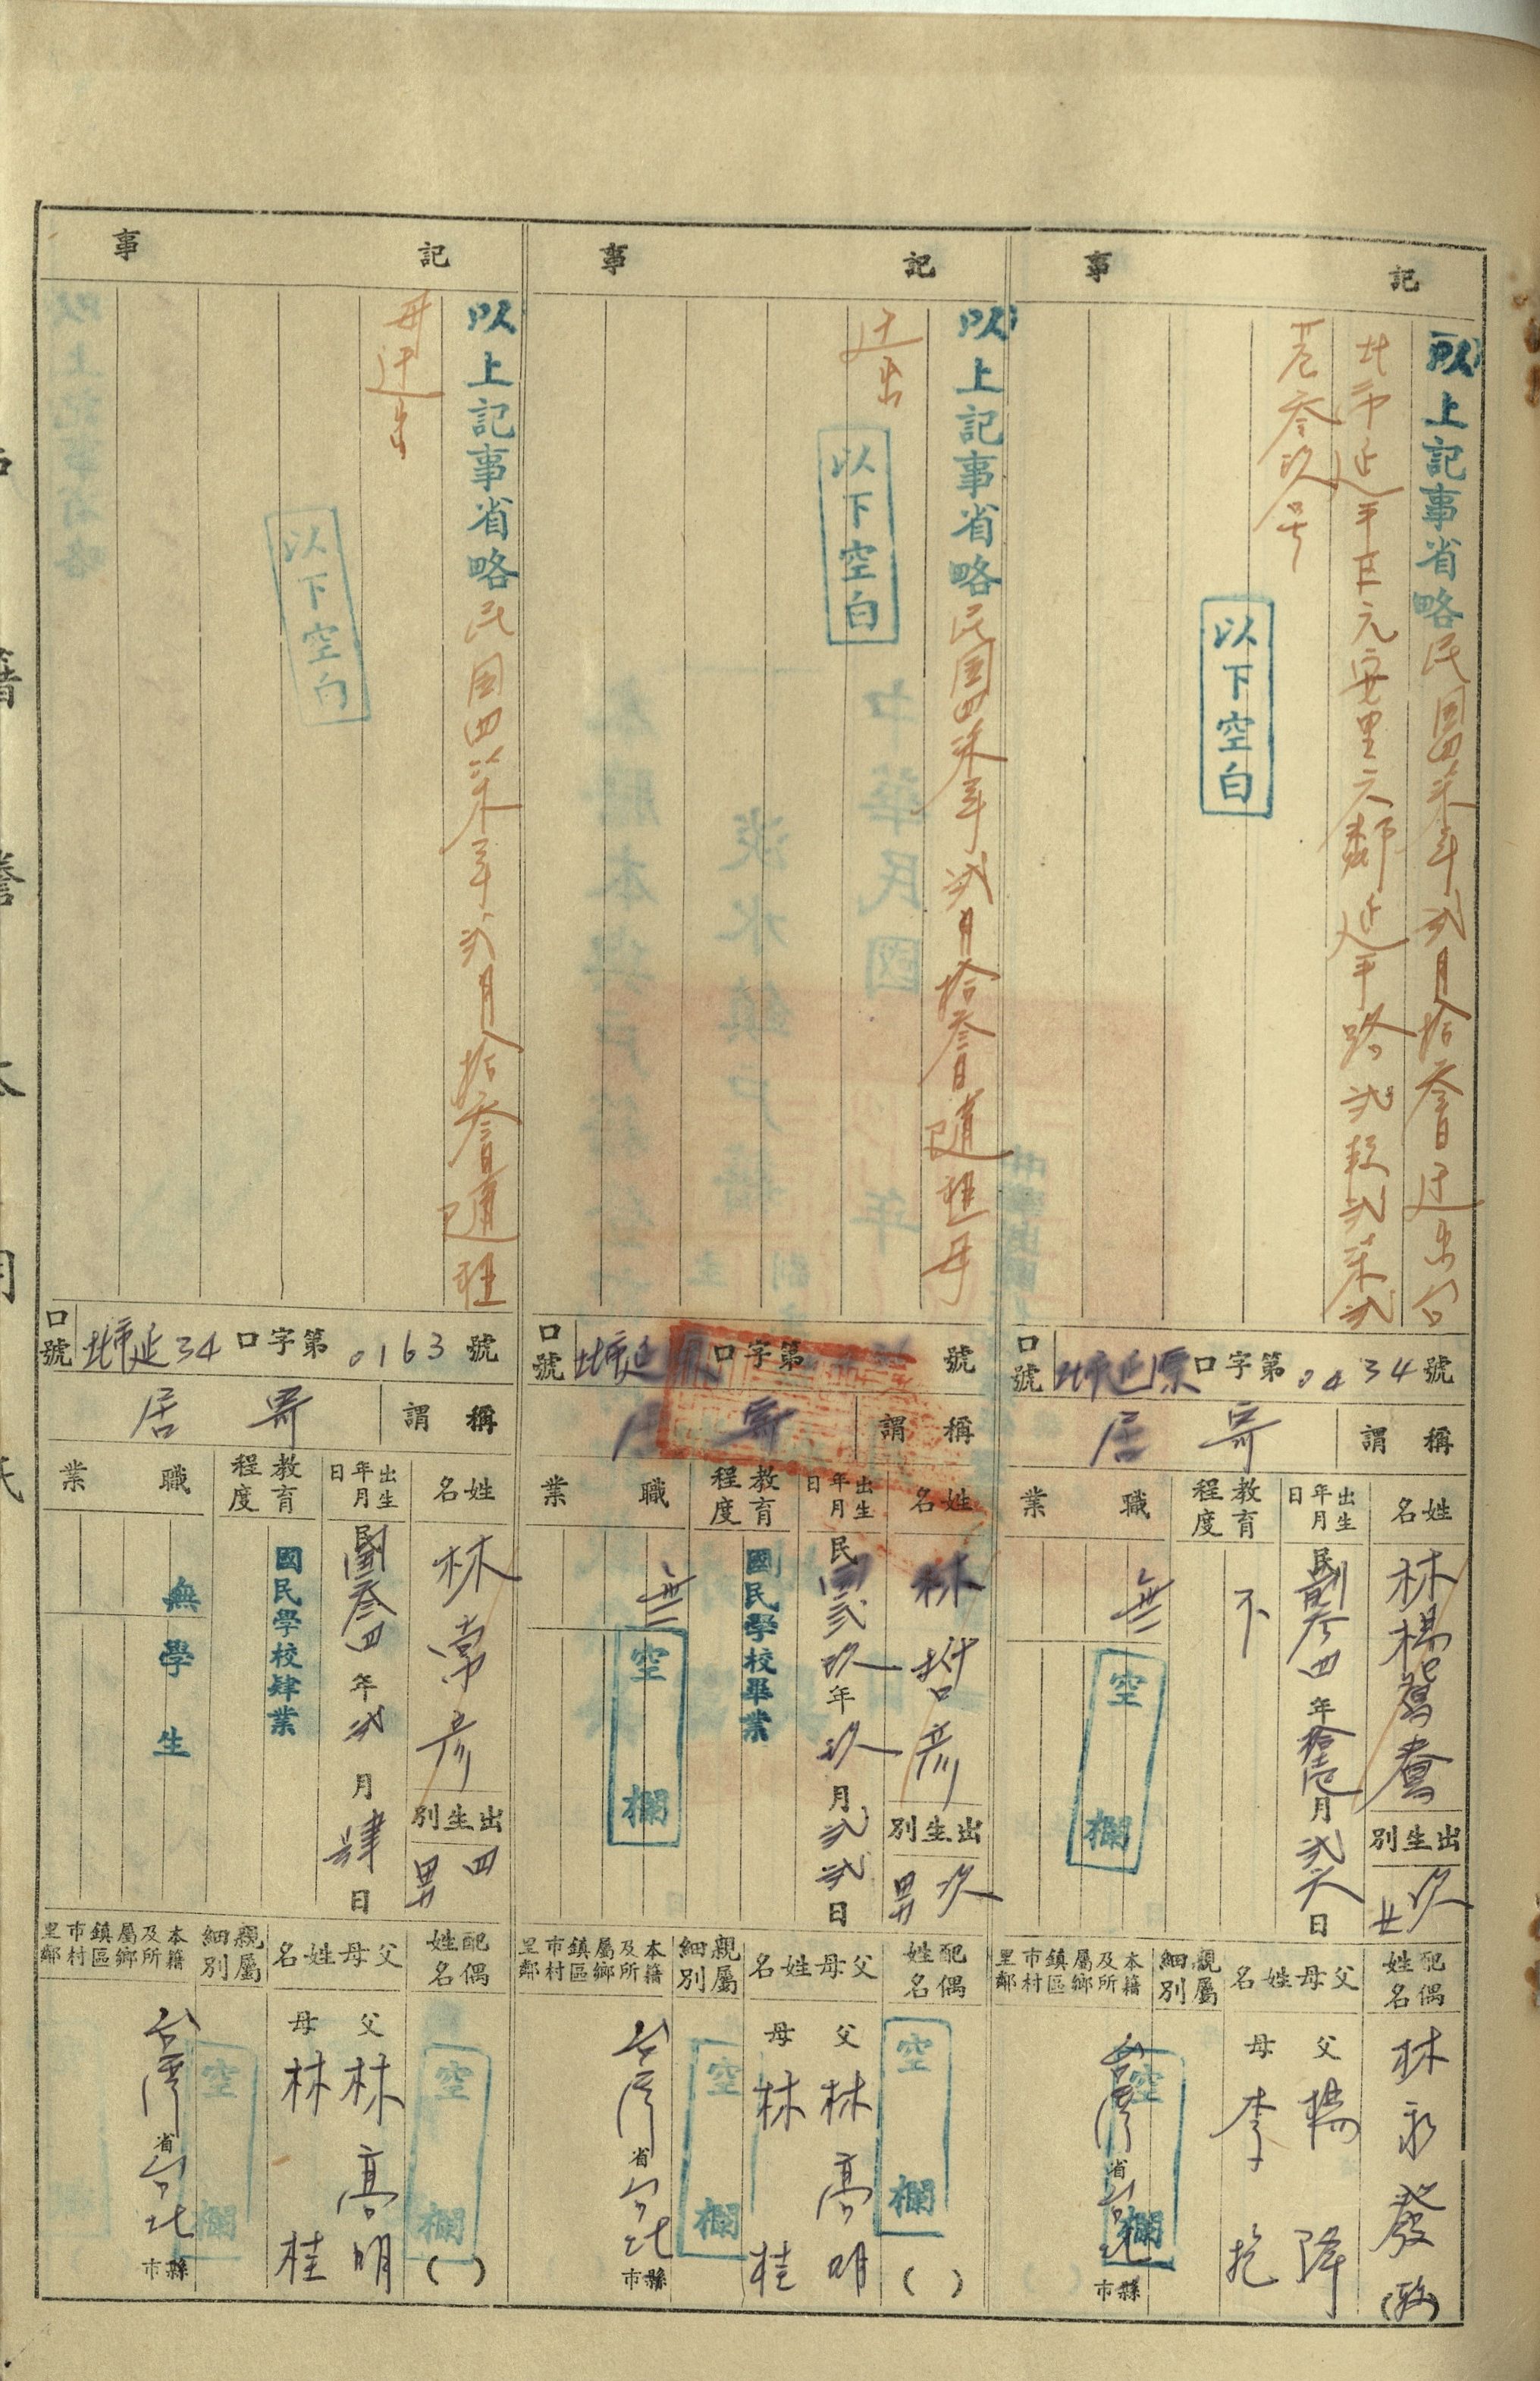 記事
以上記事省略民國四柒年弍月拾叁日迁出台
北市延平区元安里六鄰延平路弍段弍柒弍
巷叁玖号
以下空白
口號 北市延原口字第0434號
稱謂 寄居
姓名 林楊鴛鴦
出生別 玖女
出生年月日 民國前叁四年拾壱月弍六日
教育程度 不
職業 無
空欄
配偶姓名 林永發(歿)
父母姓名 父 楊降
母 李抱
親屬細別 空欄
本籍及所屬鄉鎮區市村里鄰 台灣省台北縣市
記事
以上記事省略民國四柒年弍月拾叁日隨祖母
迁出
以下空白
口號 北市延原口字第 號
稱謂 寄居
姓名 林哲彥
出生別 玖男
出生年月日 民國弍玖年玖月弍弍日
教育程度 國民學校畢業
職業 無
空欄
配偶姓名 空欄 ( )
父母姓名 父 林高明
母 林桂
親屬細別 空欄
本籍及所屬鄉鎮區市村里鄰 台灣省台北縣市
記事
以上記事省略民國四柒年弍月拾叁日隨祖
母迁出
以下空白
口號 北市延34口字第0163號
稱謂 寄居
姓名 林常彥
出生別 四男
出生年月日 民國叁四年弍月肆日
教育程度 國民學校肆業
職業 無 學生
配偶姓名 空欄 ( )
父母姓名 父 林高明
母 林桂
親屬細別 空欄
本籍及所屬鄉鎮區市村里鄰 台灣省台北縣市